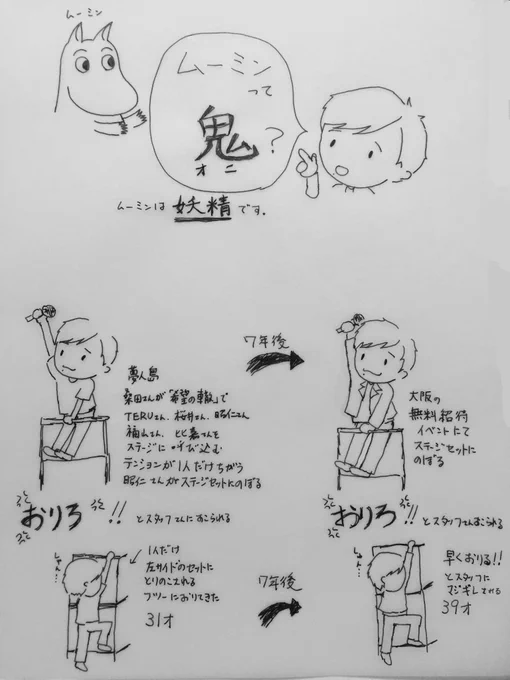 ムーミン
ムーミン
って
鬼?
オニ
ムーミンは妖精です。
7年後
夢人島
桑田さんが「希望の轍」で
TERUさん、桜井さん、昭仁さん
福山さん、ヒビ嘉さんを
ステージに呼び込む
テンションが1人だけちがう
昭仁さんがステージセットにのぼる
大阪の
無料招待
イベントにて
ステージセットに
のぼる
おりろ!!とスタッフさんにおこられる
おりろ!!とスタッフさんおこられる
しゅん…
1人だけ
左サイドのセットに
とりのこされる
フツーにおりてきた
31才
7年後
しゅん…
早くおりる!!
とスタッフに
マジギレされる
39才